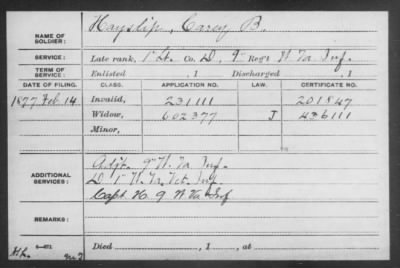 NAME OF SOLDIER: Hayslip, Carey B.
SERVICE: Late rank, 1" Lt. Co. D, 9" Reg't W Va Inf.
TERM OF SERVICE: Enlisted , 1 Discharged , 1
DATE OF FILING. CLASS. APPLICATION NO. LAW. CERTIFICATE NO.
1877 Feb. 14 Invalid, 231111 201847
Widow, 602377 J 436111
Minor,
ADDITIONAL SERVICES: Adjt. 9" W. Va Inf.
D 1" W. Va. Vet. Inf.
Capt. K. 9 W Va Inf
REMARKS:
Died , 1 , at